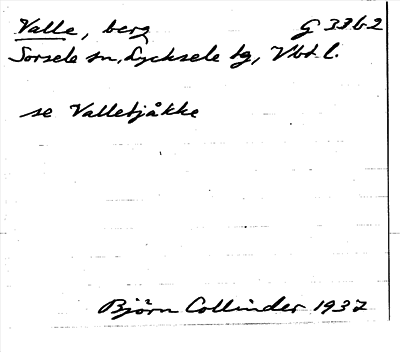 Valle, berg G 33 b 2
Sorsele sn, Lycksele tg, Vbt l.
se Valletjåkke
Björn Collinder 1937